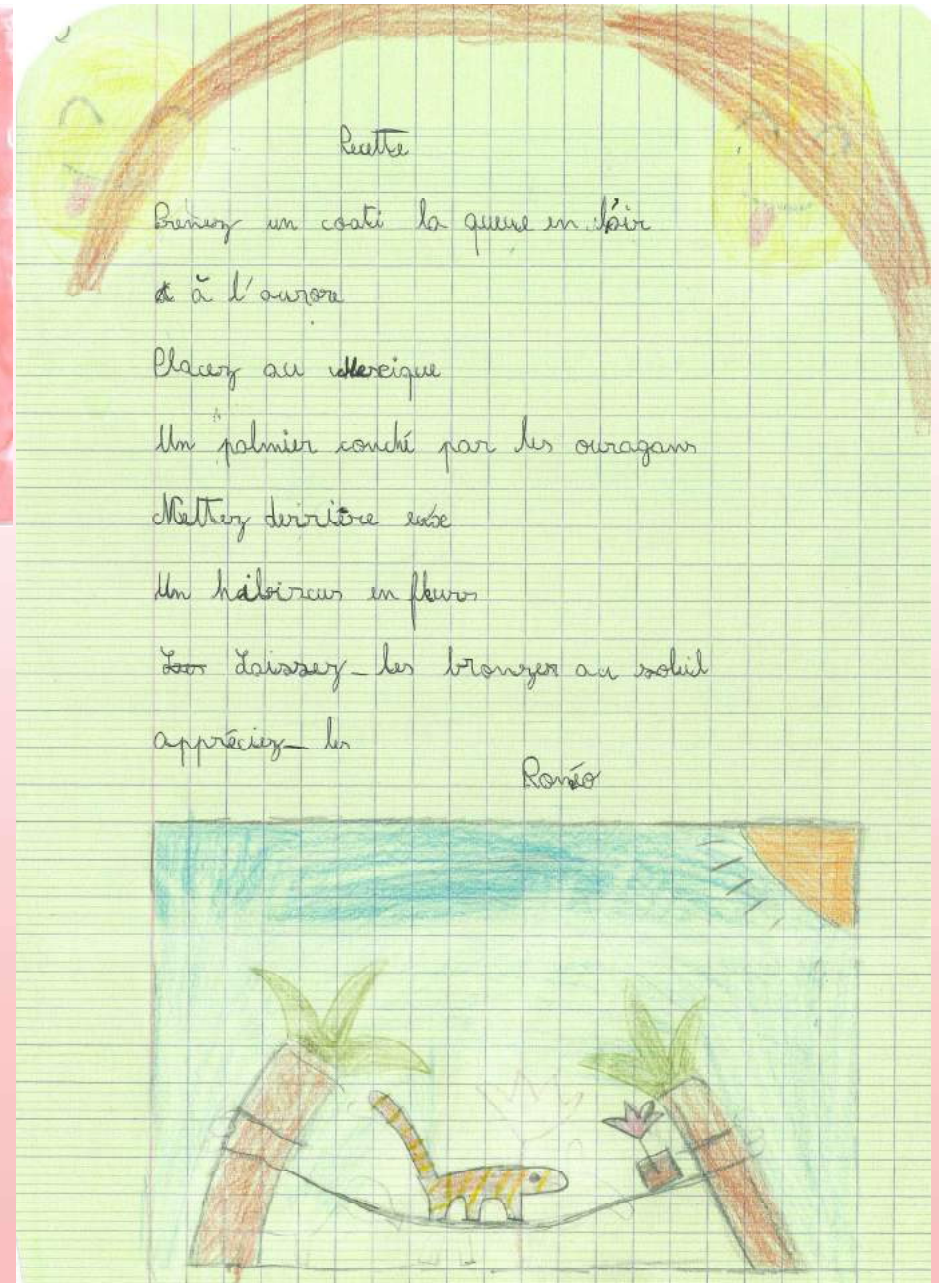 Recette
Prenez un coati la queue en l'air
à l'aurore
Placez au Mexique
Un palmier couché par les ouragans
Mettez derrière eux
Un habiscus en fleurs
Laissez-les bronzer au soleil
appréciez-les
Roméo